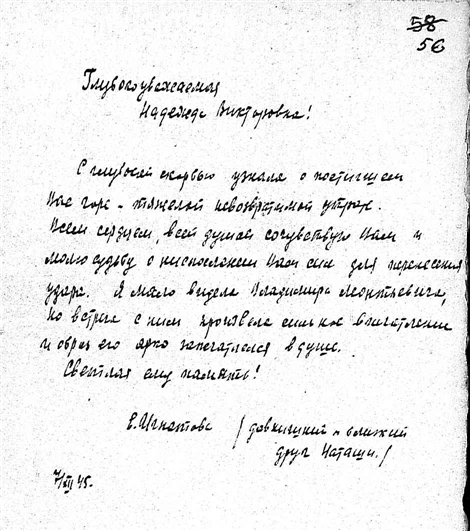 58
56
Глубокоуважаемая
Надежда Викторовна!
С глубокой скорбью узнала о постигшем
Вас горе - тяжелой невозвратимой утрате.
Всем сердцем, всей душой сочувствую Вам и
молю судьбу о ниспослании Вам сил для перенесения
удара. Я мало видела Владимира Леонтьевича,
но встреча с ним произвела сильное впечатление
и образ его ярко запечатлелся в душе.
Светлая ему память!
Е. Игнатова / давнишний и близкий
друг Наташи. /
7/XII 45.